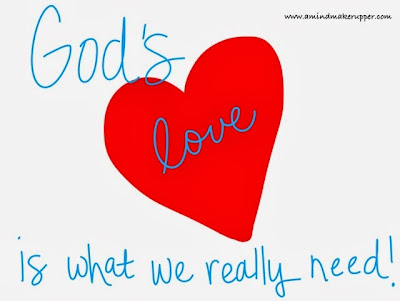 www.amindmakerupper.com
God's
love
is what we really need!